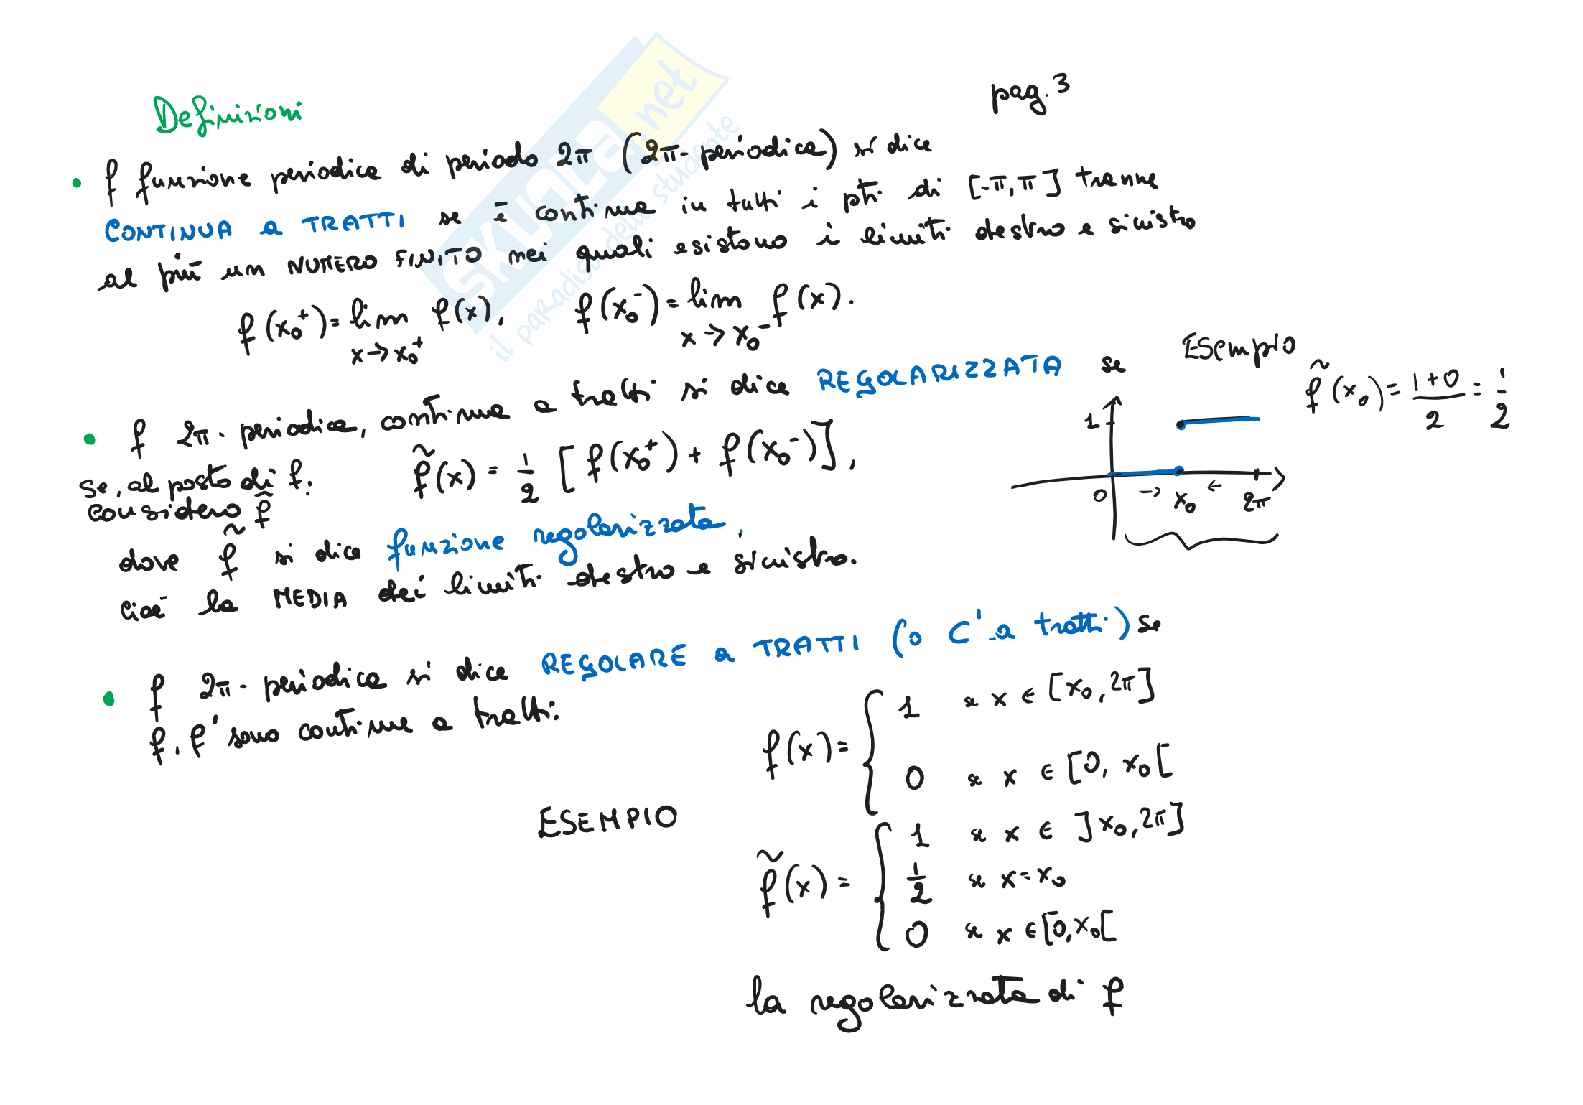 pag. 3
Definizioni
• f funzione periodica di periodo 2π (2π-periodica) si dice
CONTINUA a TRATTI se è continua in tutti i pti di [-π, π] tranne
al più un NUMERO FINITO nei quali esistono i limiti destro e sinistro
f(x₀⁺) = lim f(x), f(x₀⁻) = lim f(x).
x→x₀⁺ x→x₀⁻
• f 2π-periodica, continua a tratti si dice REGOLARIZZATA se
se, al posto di f. f̃(x) = 1/2 [f(x₀⁺) + f(x₀⁻)],
considero f̃
dove f̃ si dice funzione regolarizzata,
cioè la MEDIA dei limiti destro e sinistro.
Esempio
f̃(x₀) = (1+0)/2 = 1/2
1
0 → x₀ ← 2π
• f 2π-periodica si dice REGOLARE a TRATTI (o C¹ a tratti) se
f, f' sono continue a tratti.
ESEMPIO
f(x) = { 1 se x ∈ [x₀, 2π]
0 se x ∈ [0, x₀[
f̃(x) = { 1 se x ∈ ]x₀, 2π]
1/2 se x = x₀
0 se x ∈ [0, x₀[
la regolarizzata di f
SKUOLA.net
il paradiso dello studente